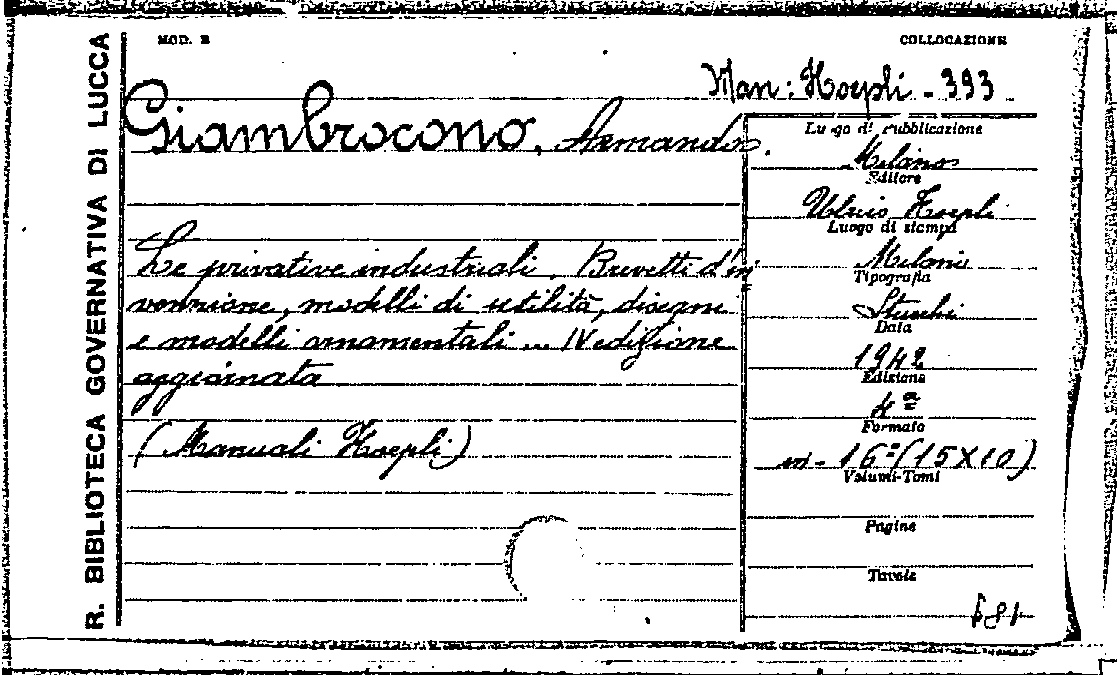 R. BIBLIOTECA GOVERNATIVA DI LUCCA
MOD. B
COLLOCAZIONE
Man: Hoepli - 393
Giambrocono, Armando.
Le privative industriali. Brevetti d'in
venzione, modelli di utilità, disegni
e modelli ornamentali ... IV edizione
aggiornata
(Manuali Hoepli)
Luogo di pubblicazione
Milano
Editore
Ulrico Hoepli
Luogo di stampa
Milano
Tipografia
Stucchi
Data
1942
Edizione
4ª
Formato
in - 16º (15x10)
Volumi-Tomi
Pagine
Tavole